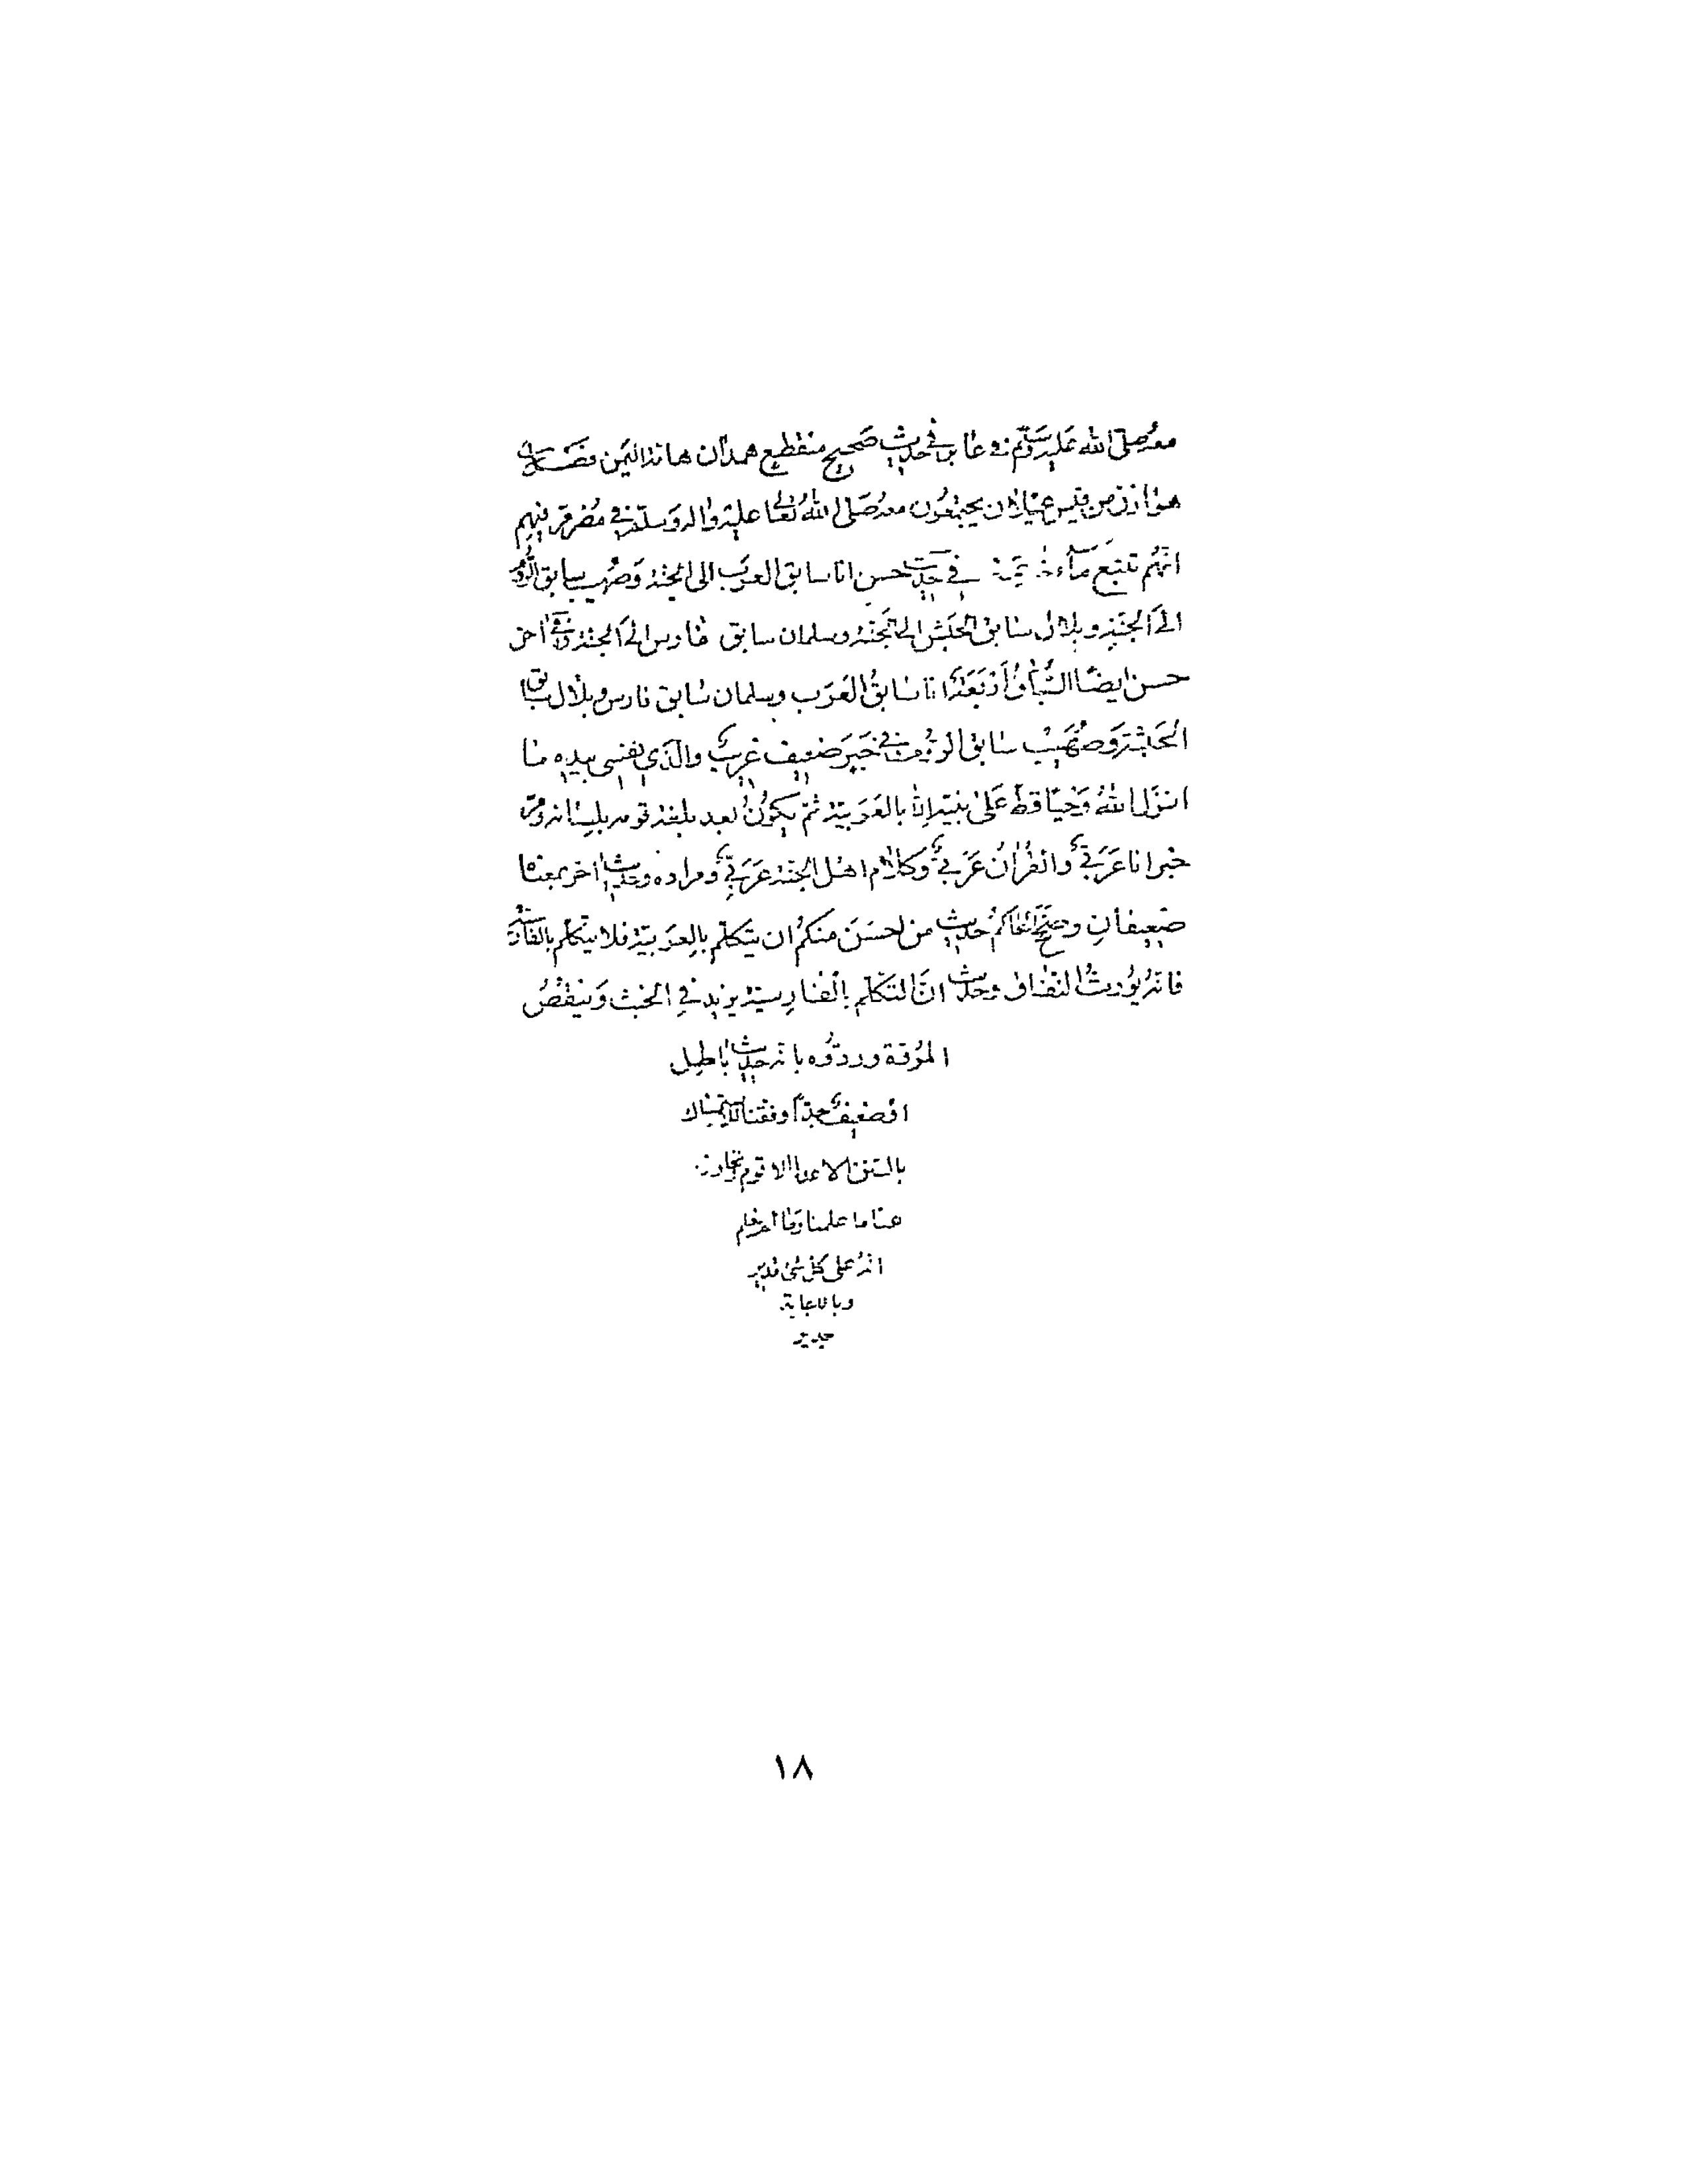 معه صلى الله عليه وسلم في حديث صحيح منقطع همدان هامة اليمن
هوازن من قيس عيلان يجتمعون معه صلى الله تعالى عليه واله وسلم في مضر فيهم
انهم تتبع ماء في حديث حسن انا سابق العرب الى الجنة وصهيب سابق الروم
الى الجنة وبلال سابق الحبش الى الجنة وسلمان سابق فارس الى الجنة وفي اخر
حسن ايضا السباق اربعة انا سابق العرب وسلمان سابق فارس وبلال سابق
الحبشة وصهيب سابق الروم في خبر ضعيف غريب والذي نفسي بيده ما
انزل الله وحيا قط على نبي الا بالعربية ثم يكون بعد يبلغه قومه بلسانه ومر
خبر انا عربي والقران عربي وكلام اهل الجنة عربي ومراده وحديث اخر بمعناه
ضعيفان وصحح الحاكم حديث من احسن منكم ان يتكلم بالعربية فلا يتكلم بالفارسية
فانه يورث النفاق وحديث ان التكلم بالفارسية يزيد في الخبث وينقص
المروة وردوه بانه حديث باطل
او ضعيف جدا وفقنا للاستمساك
بالسنن
عنا ما علمنا وما لم نعلم
انه على كل شئ قدير
وبالاجابة
جدير
١٨